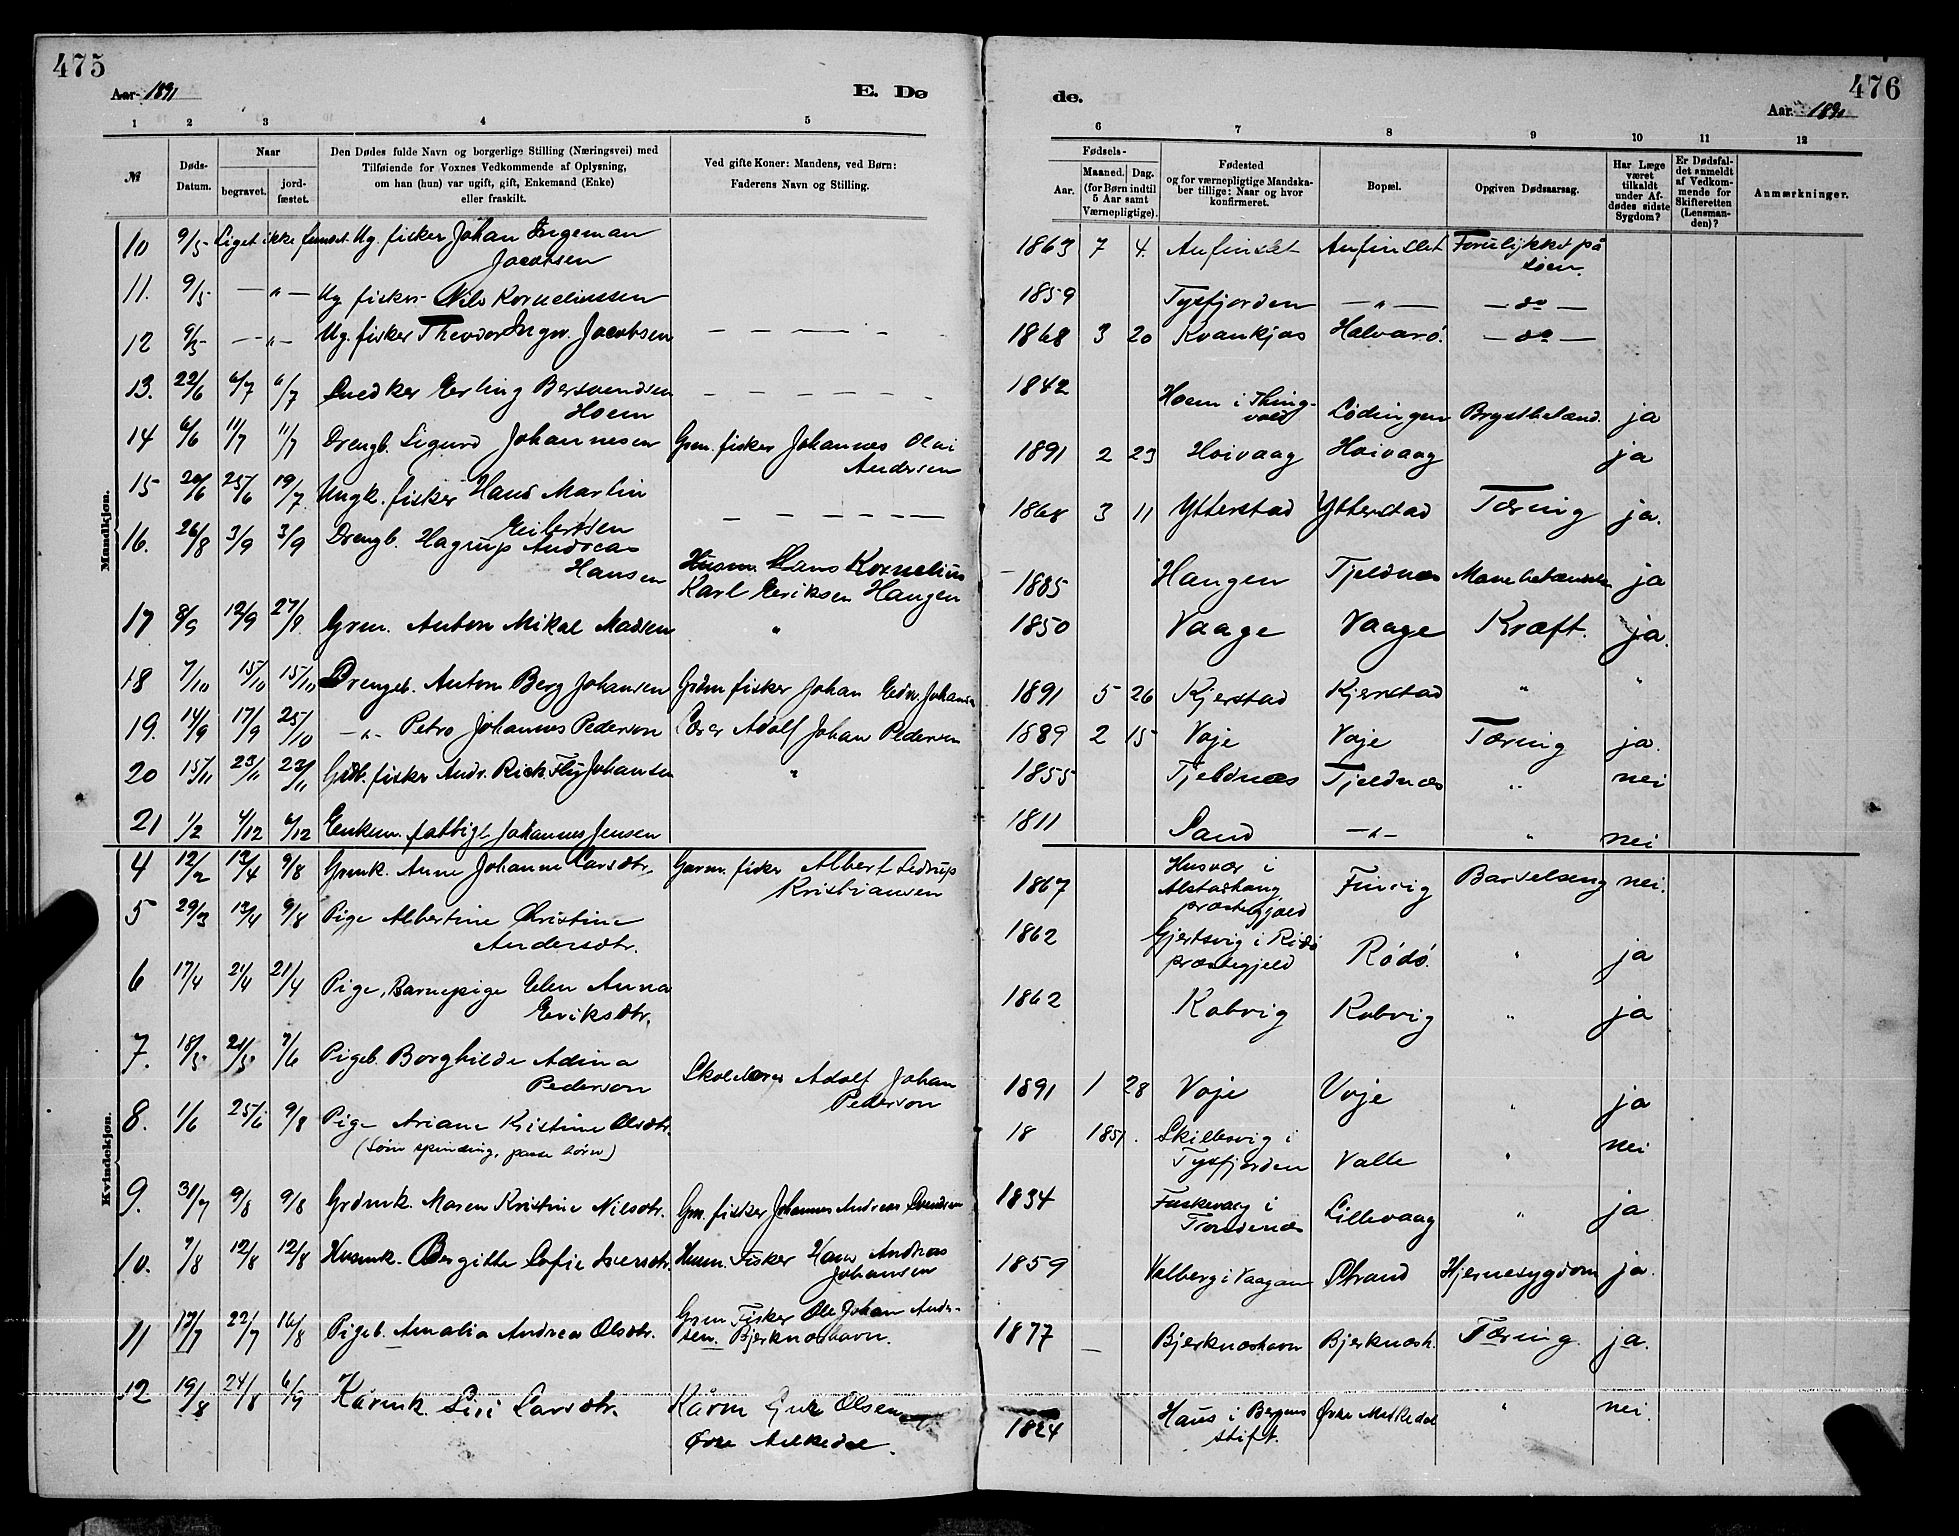 475
Aar 1891
E. Dø
1 2 3 4 5
№
Døds-Datum.
Naar
begravet.
jordfæstet.
Den Dødes fulde Navn og borgerlige Stilling (Næringsvei) med
Tilføiende for Voxnes Vedkommende af Oplysning,
om han (hun) var ugift, gift, Enkemand (Enke)
eller fraskilt.
Ved gifte Koner: Mandens, ved Børn:
Faderens Navn og Stilling.
Mandkjøn.
10 9/5 Liget ikke fundet Ug. fisker Johan Ingeman
Jacobsen
11. 9/5 — „ — Ug fisker Nils Korneliussen
12 9/5 — „ — Ug. fisker Theodor Ingv. Jacobsen — — — — —
13. 22/6 6/7 6/7 Snedker Erling Bersvendsen — — — — —
Hoem
14 6/6 11/7 11/7 Drengb. Sigurd Johannesen Grm. fisker Johannes Olai
Andersen
15 20/6 25/6 19/7 Ungk. fisker Hans Martin
Eilertsen — — — — —
16. 26/8 3/9 3/9 Drengb. Hagrup Andreas
Hansen Husm. Hans Kornelius
Karl Eriksen Haugen
17 8/9 12/9 27/9 Grm. Anton Mikal Madsen „
18 7/10 15/10 15/10 Drengeb. Anton Berg Johansen Grdm fisker Johan Edv. Johansen
19. 14/9 17/9 25/10 — „ — Petro Johannes Pedersen Lærer Adolf Johan Pedersen
20 15/11 23/11 23/11 fisker Andr. Rick Johansen „
21 1/2 6/12 6/12 Enkem. fattigl. Johannes Jensen
Kvindekjøn.
4 12/2 13/4 9/8 Grmk. Anne Johanne Larsdtr. Gaardm. fisker Albert Sedrup
Kristiansen
5 29/3 13/4 9/8 Pige Albertine Christine
Andersdtr.
6 17/4 21/4 21/4 Pige, Barnepige Elen Anna
Eriksdtr.
7. 18/5 21/5 7/6 Pigeb. Borghilde Adina
Pedersen Skolelærer Adolf Johan
Pedersen
8. 1/6 25/6 9/8 Pige Ariane Kristine Olsdtr.
(Søm spinding, passe børn)
9. 31/7 9/8 9/8 Grdmk. Maren Kristine Nilsdtr. Grm. fisker Johannes Andreas
10. 7/8 12/8 12/8 Husmk. Bergitte Sofie Iversdtr. Husm. Fisker Hans Andreas
Johansen
11 17/7 22/7 16/8 Pigeb. Amalia Andrea Olsdtr. Grm Fisker Ole Johan Ander-
sen. Bjerknæshavn.
12 19/8 24/8 6/9 Kårmk. Siri Larsdtr. Kårm Olsen
Øvre

476
de.
Aar. 1891
6 7 8 9 10 11 12
Fødsels-
Aar. Maaned. Dag.
(for Børn indtil
5 Aar samt
Værnepligtige).
Fødested
og for værnepligtige Mandska-
ber tillige: Naar og hvor
konfirmeret.
Bopæl.
Opgiven Dødsaarsag.
Har Læge
været
tilkaldt
under Af-
dødes sidste
Sygdom?
Er Dødsfal-
det anmeldt
af Vedkom-
mende for
Skifteretten
(Lensman-
den)?
Anmærkninger.
1863 7 4. Anfindslet Anfindslet Forulykket på
søen.
1859 Tysfjorden — „ — — do —
1868 3 20 Kvankjos Halvarø. — do —
1842 Hoem i Thing-
vold Lødingen Brystbetænd. ja
1891 2 23 Hoivaag Hoivaag ja
1868 3 11 Ytterstad Ytterstad Tæring ja.
1885 Haugen Tjeldnæs Mavebetændelse ja
1850 Vaage Vaage Kræft. ja.
1891 5 26 Kjerstad Kjerstad „ „
1889 2 15 Voje Voje Tæring ja.
1855 Tjeldnæs Tjeldnæs „ nei
1811 Sand — „ — „ nei
1867 Husvær i
Alstadhaug
præstegjæld Finvig Barselseng nei.
1862 Gjertsvig i Rødø
præstegjeld Rødø. „ ja
1862 Kobvig Kobvig „ ja
1891 1 28 Voje Voje „ ja
18 1851. Skillesvig i
Tysfjorden Valle „ nei
1834 Fuskevaag i
Trondenæs Lillevaag „ ja
1859 Valberg i Vaagan Strand Hjernesygdom ja.
1877 — Bjerknæshavn Bjerknæsh. Tæring. ja.
1824 Haus i Bergens
stift. Øvre „ nei.